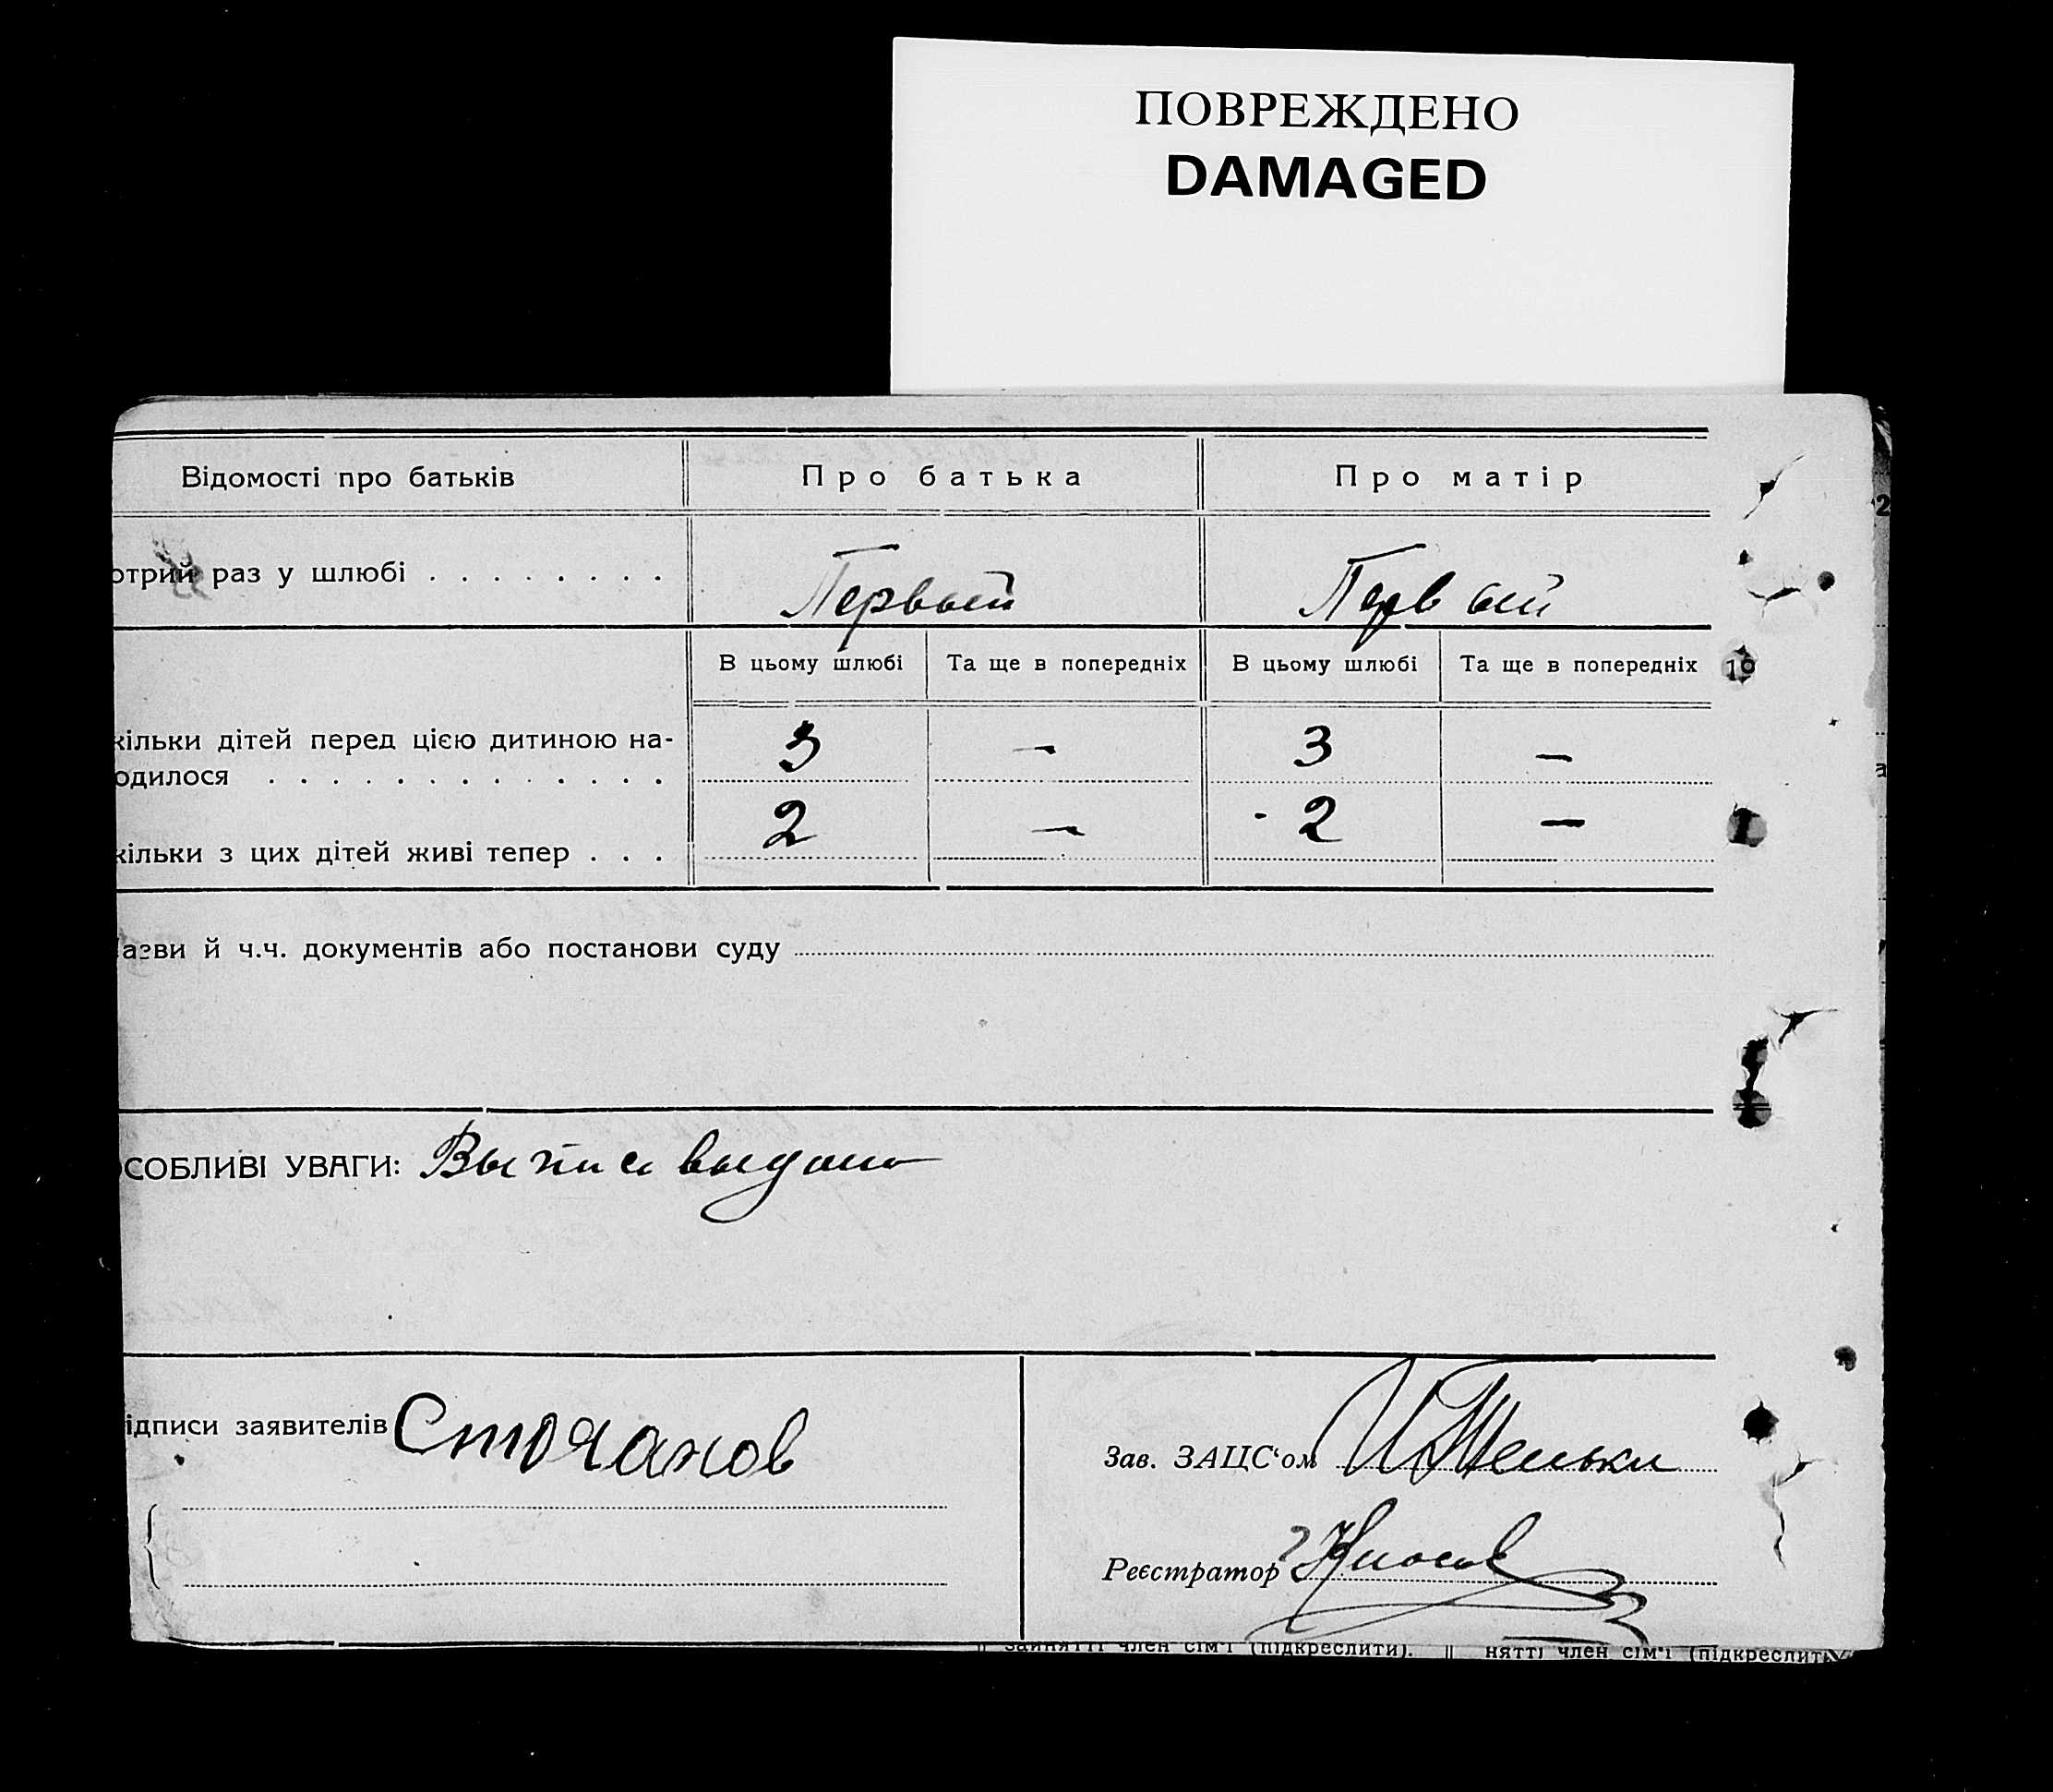 ПОВРЕЖДЕНО
DAMAGED
Відомості про батьків Про батька Про матір
отрий раз у шлюбі . . . . . . . . Первый Первый
В цьому шлюбі Та ще в попередніх В цьому шлюбі Та ще в попередніх
кільки дітей перед цією дитиною на-
одилося . . . . . . . . . . . . . 3 — 3 —
кільки з цих дітей живі тепер . . . 2 — 2 —
азви й ч.ч. документів або постанови суду
СОБЛИВІ УВАГИ: Выпись выдана
ідписи заявителів Стоянов
Зав. ЗАЦС'ом
Реєстратор
зайнятті член сім'ї (підкреслити). нятті член сім'ї (підкреслити